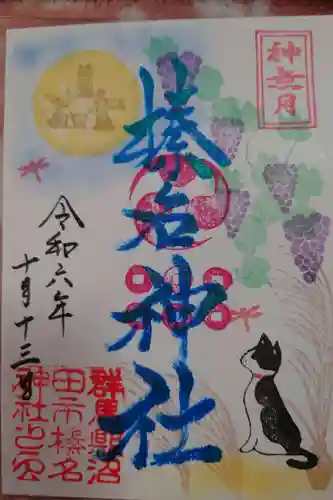 神無月
榛名神社
令和六年
十月十三日
群馬県沼
田市榛名
神社之印